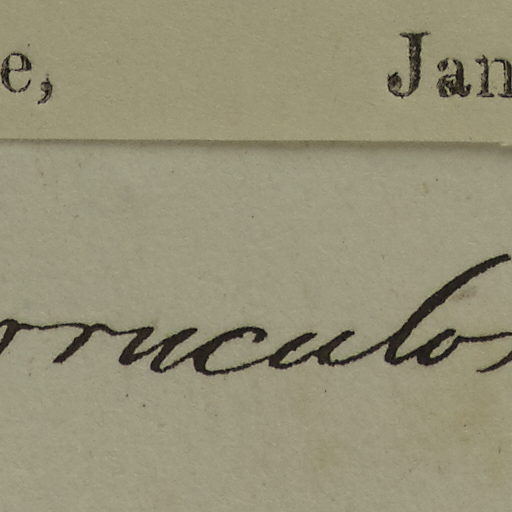 e, Jan
rruculos